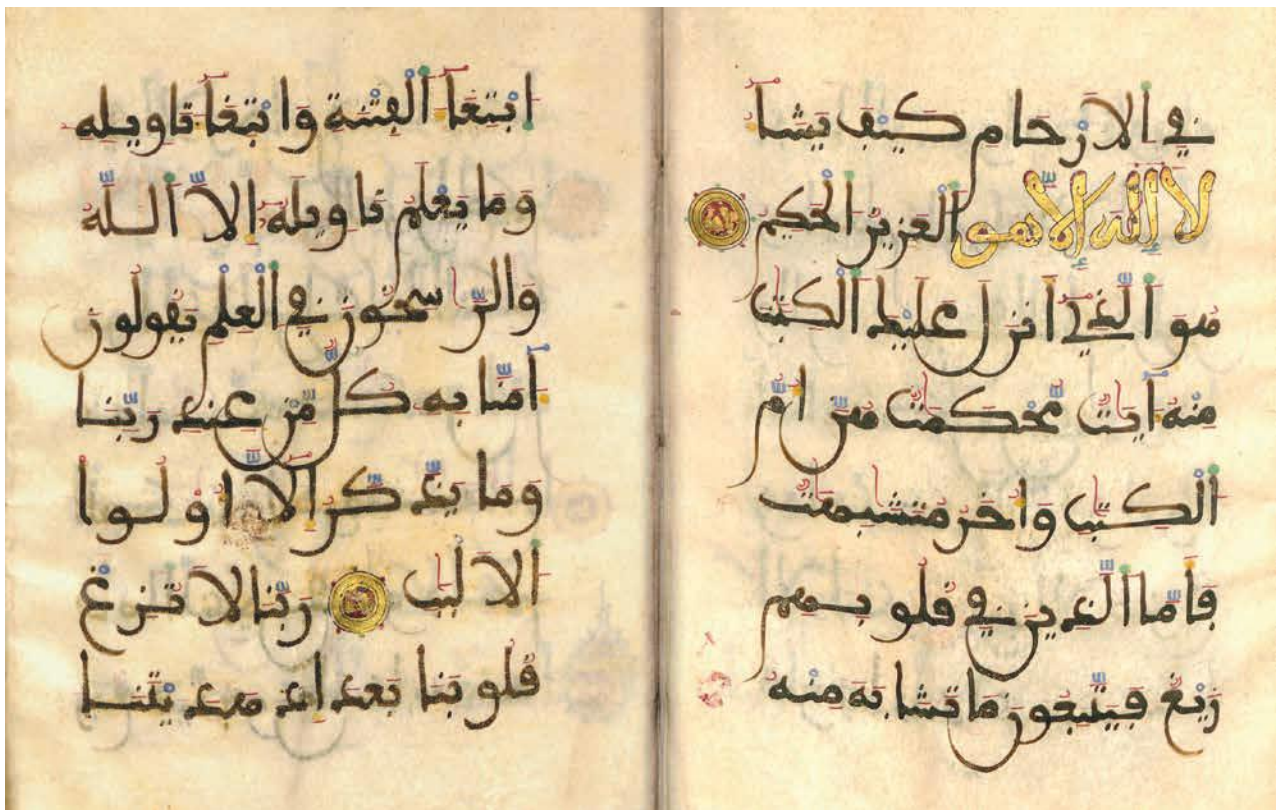 في الارحام كيف يشا
لا اله الا هو العزيز الحكيم
هو الذي انزل عليك الكتب
منه ايت محكمت هن ام
الكتب واخر متشبهت
فاما الذين في قلوبهم
زيغ فيتبعون ما تشابه منه
ابتغا الفتنة وابتغا تاويله
وما يعلم تاويله الا الله
والراسخون في العلم يقولون
امنا به كل من عند ربنا
وما يذكر الا اولوا
الالبب ربنا لا تزغ
قلوبنا بعد اذ هديتنا